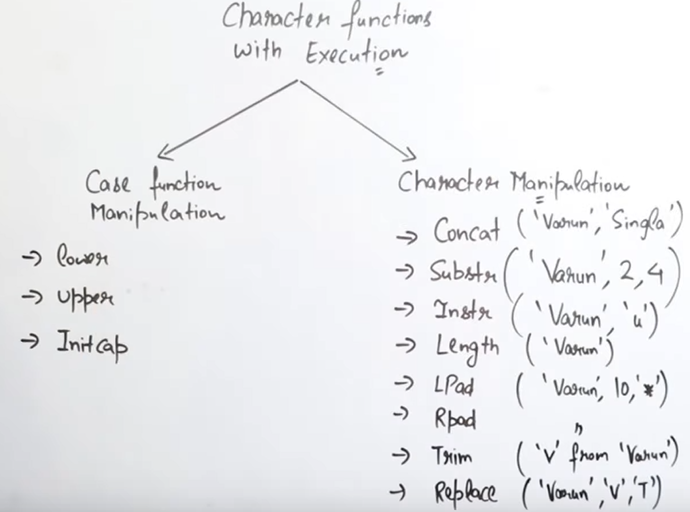 Character functions
with Execution
Case function
Manipulation
→ lower
→ upper
→ Initcap
Character Manipulation
→ Concat ('Varun', 'Singla')
→ Substr ('Varun', 2,4)
→ Instr ('Varun', 'u')
→ Length ('Varun')
→ LPad ('Varun', 10,'*')
→ Rpad "
→ Trim ('V' from 'Varun')
→ Replace ('Varun','V','T')